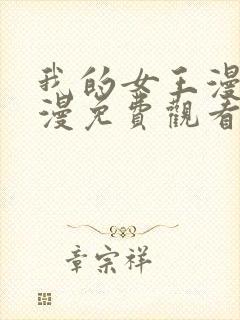 我的女王漫
漫免費觀看
章宗祥